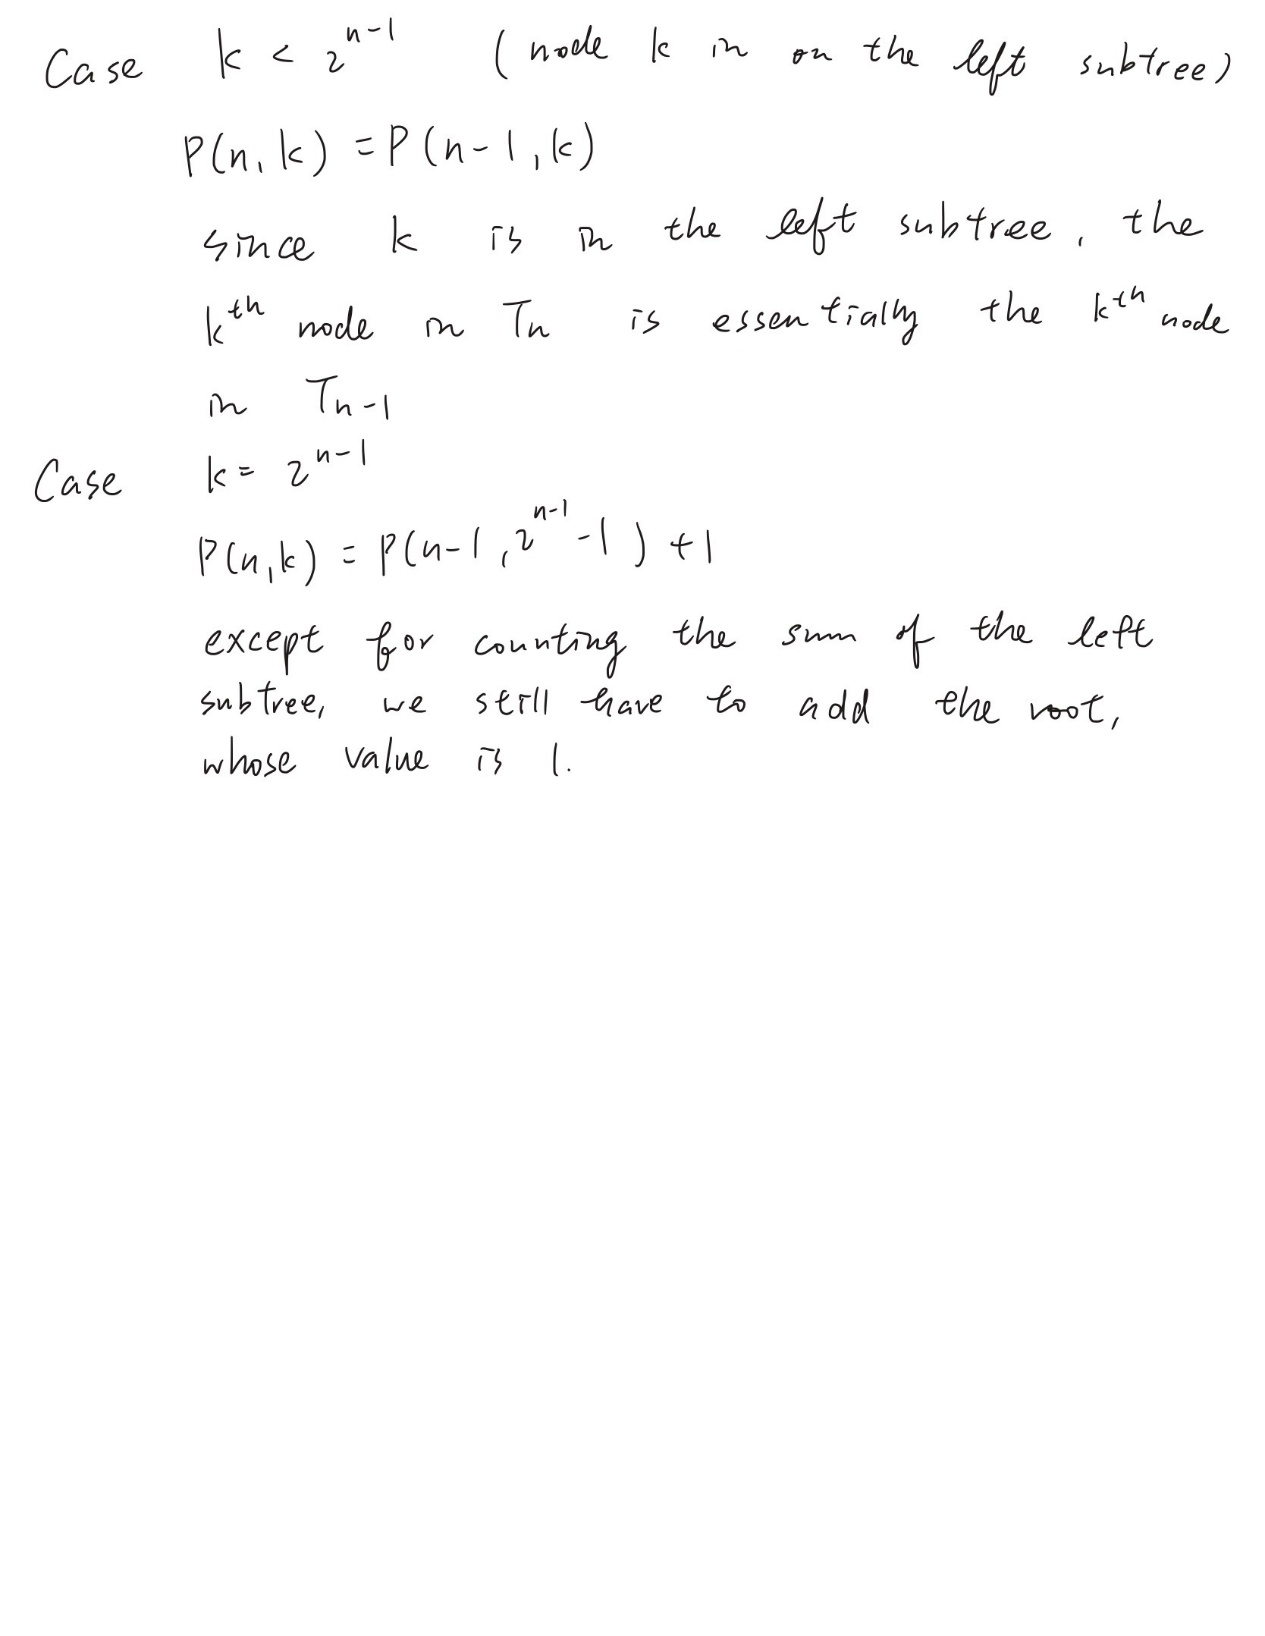 Case k < 2^{n-1} (node k in on the left subtree)
P(n, k) = P(n-1, k)
since k is in the left subtree, the
k^{th} node in T_n is essentially the k^{th} node
in T_{n-1}
Case k = 2^{n-1}
P(n, k) = P(n-1, 2^{n-1} - 1) + 1
except for counting the sum of the left
subtree, we still have to add the root,
whose value is 1.